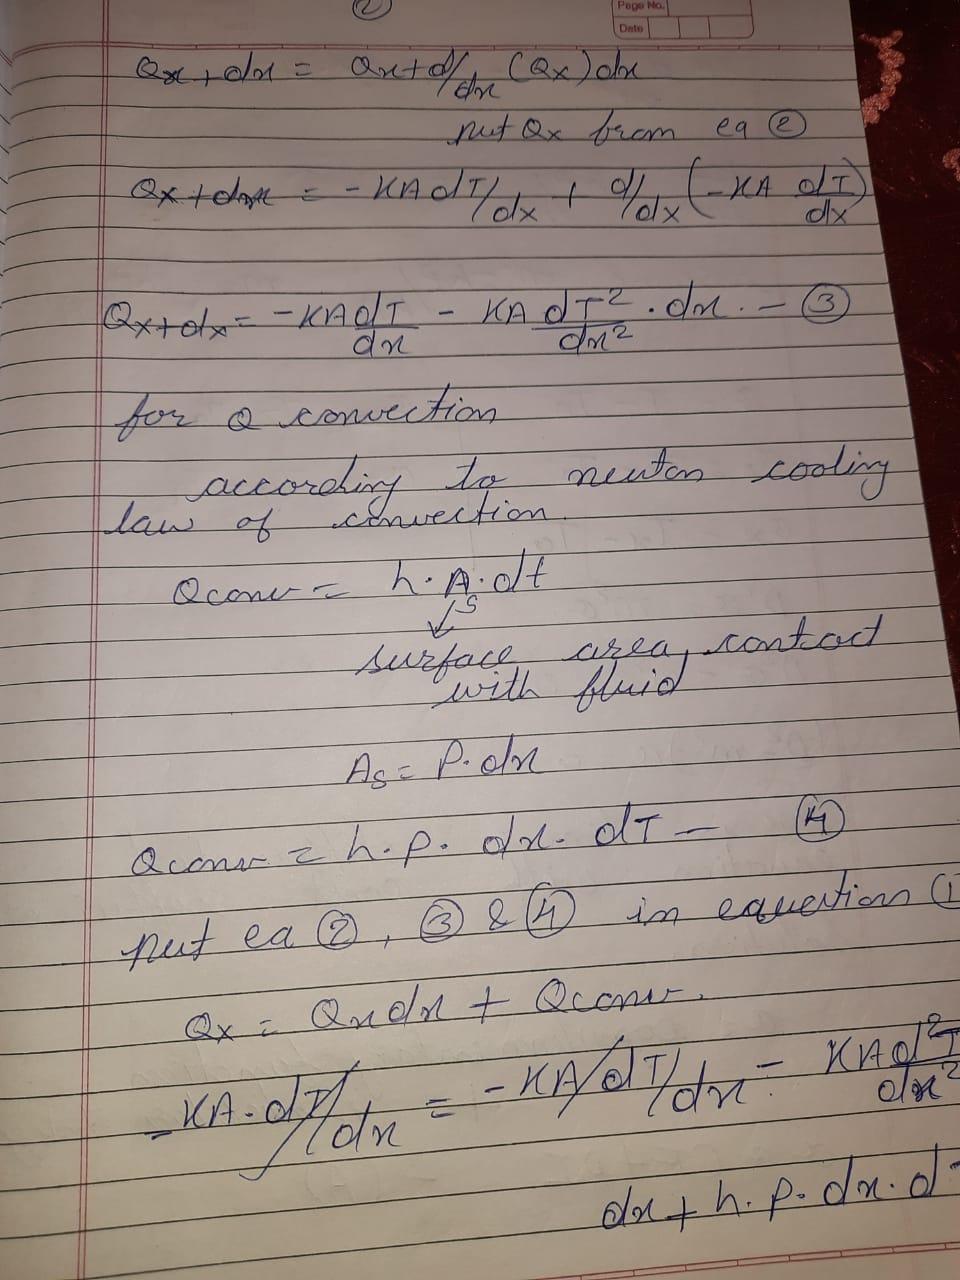 ②
Page No.
Date
Qx+dx = Qx+d/dx (Qx)dx
put Qx from eq ②
Qx+dx = -KA dT/dx + d/dx (-KA dT/dx)
Qx+dx = -KA dT/dx - KA dT²/dx² . dx. - ③
for Q convection
according to newton cooling
law of convection.
Qconv = h. As. dt
surface area, contact
with fluid
As = P. dx
Qconv = h. p. dx. dT - ④
put eq ②, ③ & ④ in equation ①
Qx = Qxdx + Qconv.
-KA. dT/dx = -KA dT/dx - KA d²T/dx²
dx + h. p. dx. d